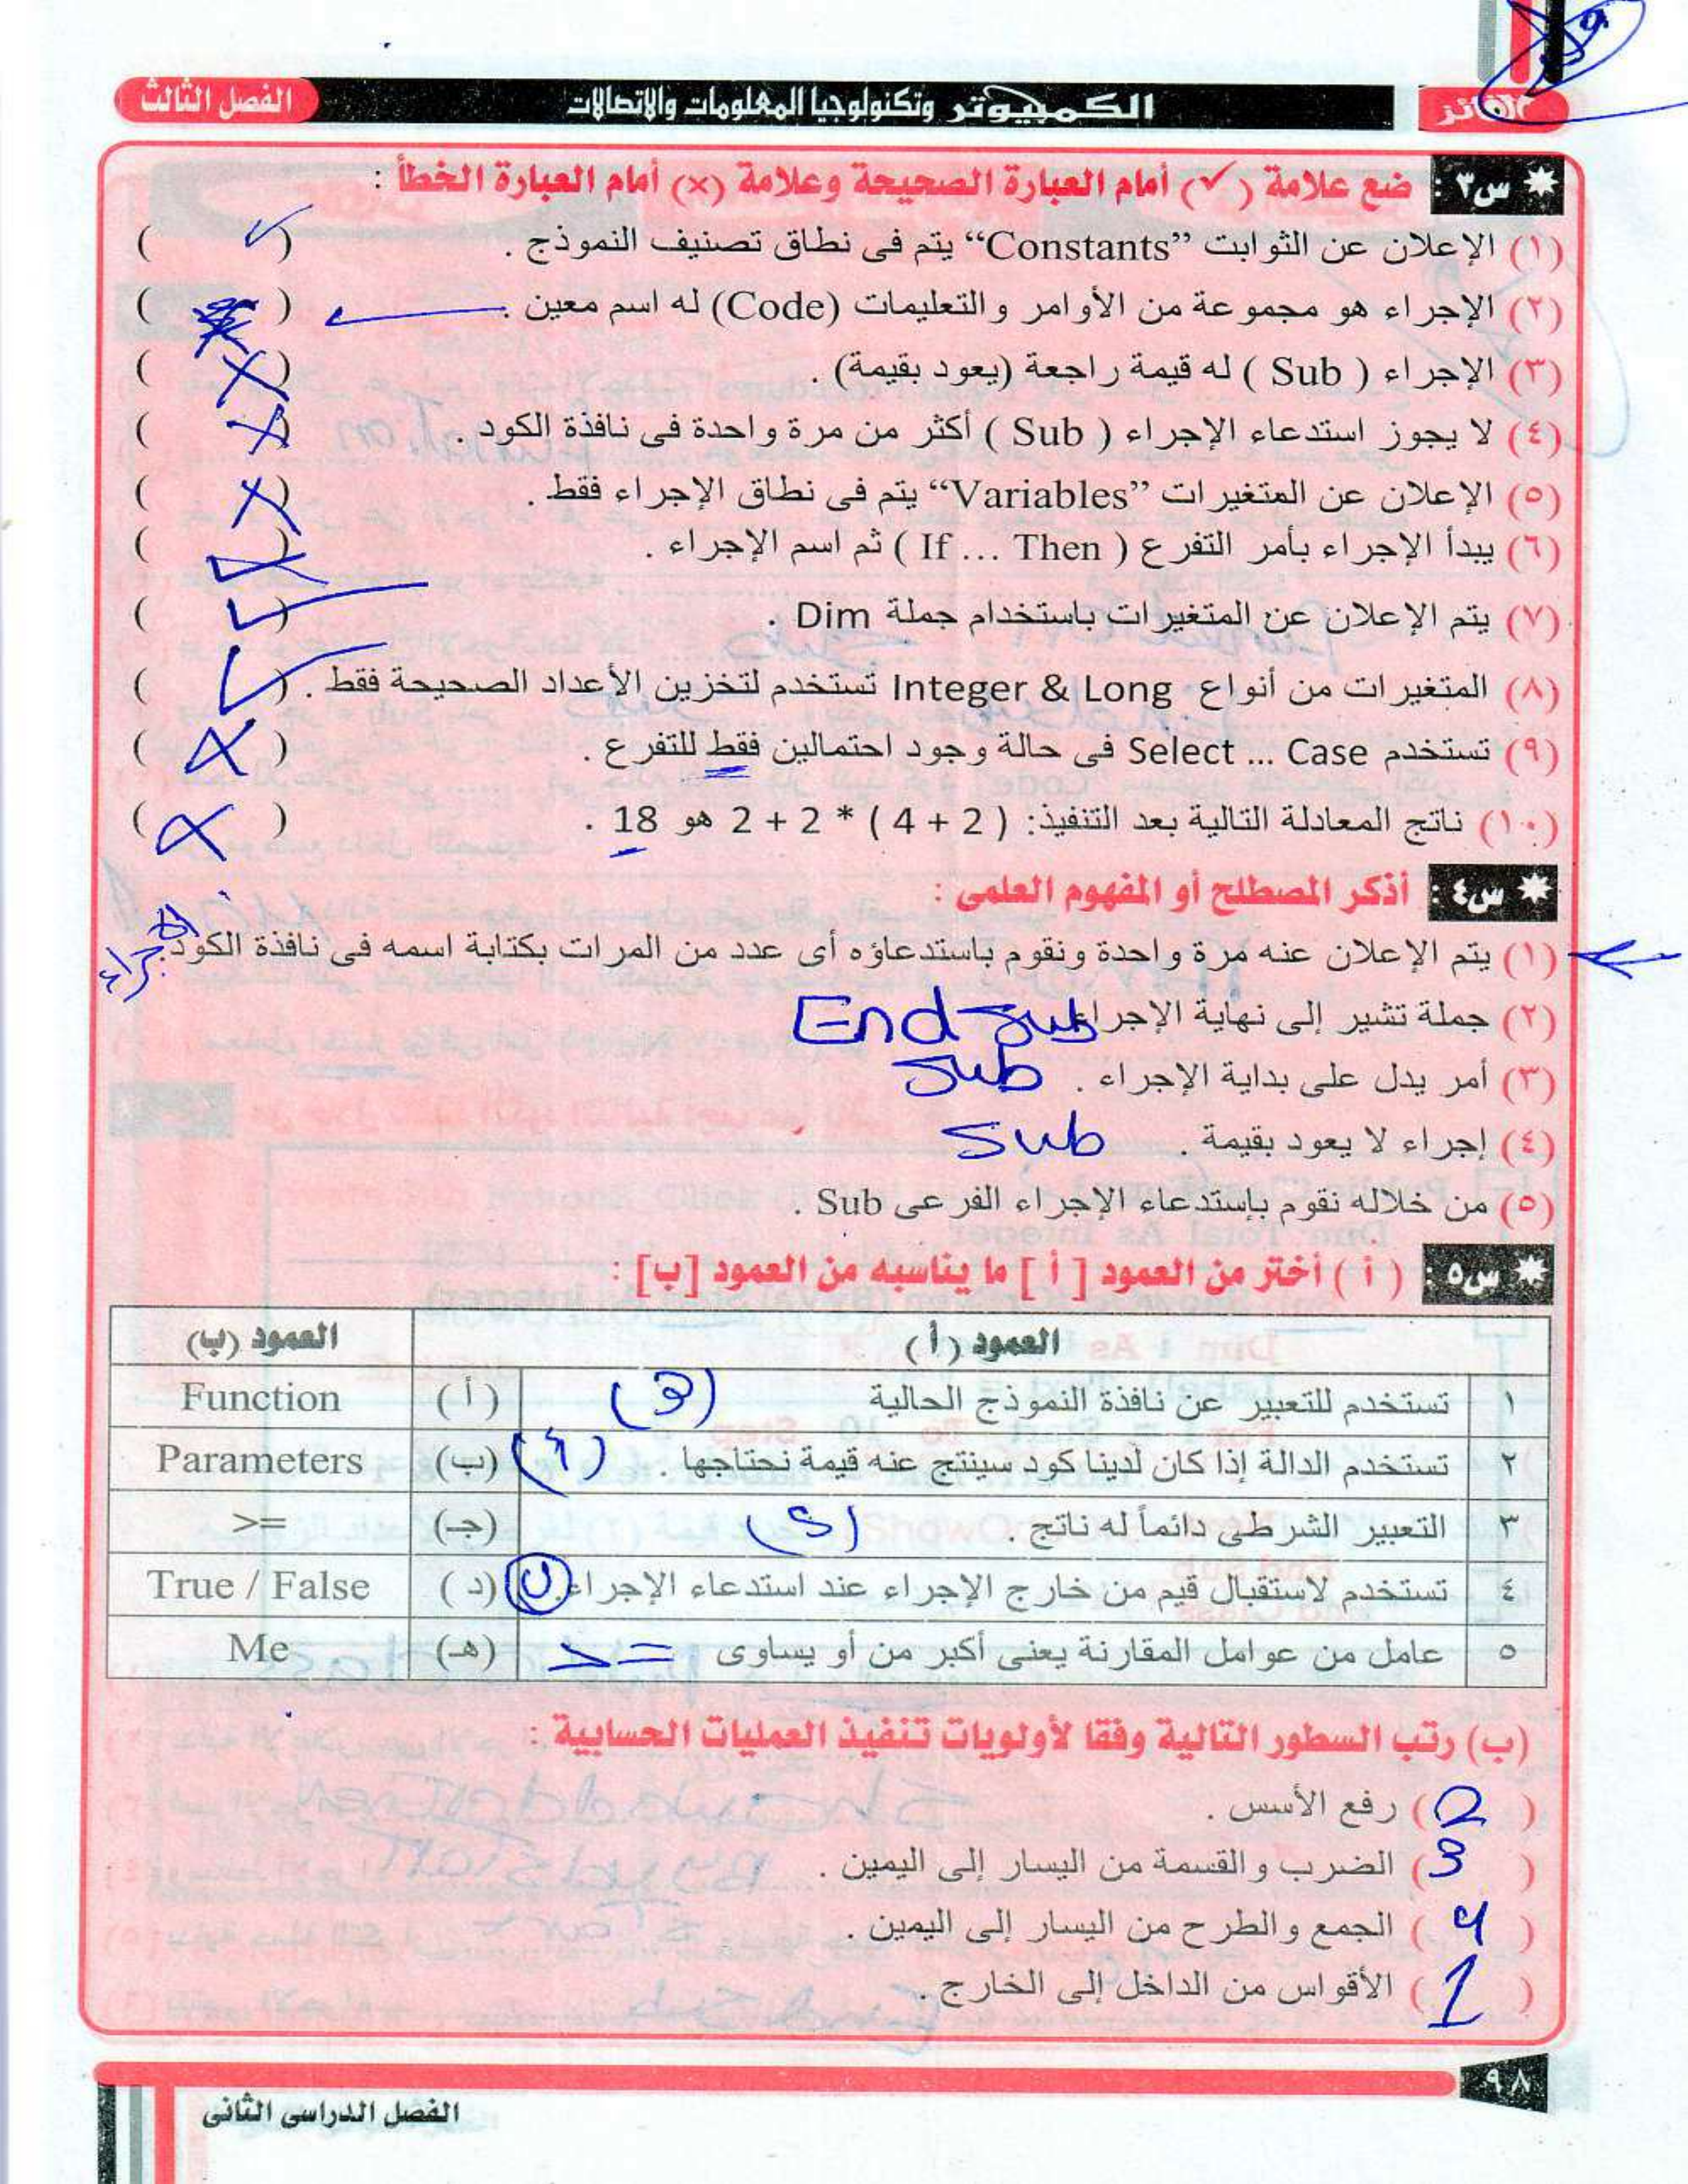 الفائز
الكمبيوتر وتكنولوجيا المعلومات والاتصالات
الفصل الثالث
س٣ : ضع علامة (✓) أمام العبارة الصحيحة وعلامة (×) أمام العبارة الخطأ :
(١) الإعلان عن الثوابت “Constants” يتم فى نطاق تصنيف النموذج . ( ✓ )
(٢) الإجراء هو مجموعة من الأوامر والتعليمات (Code) له اسم معين . ( ) ✓
(٣) الإجراء ( Sub ) له قيمة راجعة (يعود بقيمة) . ( X )
(٤) لا يجوز استدعاء الإجراء ( Sub ) أكثر من مرة واحدة فى نافذة الكود . ( X )
(٥) الإعلان عن المتغيرات “Variables” يتم فى نطاق الإجراء فقط . ( X )
(٦) يبدأ الإجراء بأمر التفرع ( If ... Then ) ثم اسم الإجراء . ( )
(٧) يتم الإعلان عن المتغيرات باستخدام جملة Dim . ( ✓ )
(٨) المتغيرات من أنواع Integer & Long تستخدم لتخزين الأعداد الصحيحة فقط . ( ✓ )
(٩) تستخدم Select ... Case فى حالة وجود احتمالين فقط للتفرع . ( X )
(١٠) ناتج المعادلة التالية بعد التنفيذ: ( 2 + 4 ) * 2 + 2 هو 18 . ( X )
س٤ : أذكر المصطلح أو المفهوم العلمى :
(١) يتم الإعلان عنه مرة واحدة ونقوم باستدعاؤه أى عدد من المرات بكتابة اسمه فى نافذة الكود. الإجراء
(٢) جملة تشير إلى نهاية الإجراء End Sub
(٣) أمر يدل على بداية الإجراء . Sub
(٤) إجراء لا يعود بقيمة . Sub
(٥) من خلاله نقوم بإستدعاء الإجراء الفرعى Sub .
س٥ : ( أ ) أختر من العمود [ أ ] ما يناسبه من العمود [ب] :
العمود ( أ ) العمود (ب)
١ تستخدم للتعبير عن نافذة النموذج الحالية ( أ ) Function
٢ تستخدم الدالة إذا كان لدينا كود سينتج عنه قيمة نحتاجها . (أ) (ب) Parameters
٣ التعبير الشرطى دائماً له ناتج . (د) (جـ) >=
٤ تستخدم لاستقبال قيم من خارج الإجراء عند استدعاء الإجراء. ب ( د ) True / False
٥ عامل من عوامل المقارنة يعنى أكبر من أو يساوى >= (هـ) Me
(ب) رتب السطور التالية وفقا لأولويات تنفيذ العمليات الحسابية :
( 2 ) رفع الأسس .
( 3 ) الضرب والقسمة من اليسار إلى اليمين .
( 4 ) الجمع والطرح من اليسار إلى اليمين .
( 1 ) الأقواس من الداخل إلى الخارج .
٩٨
الفصل الدراسى الثانى